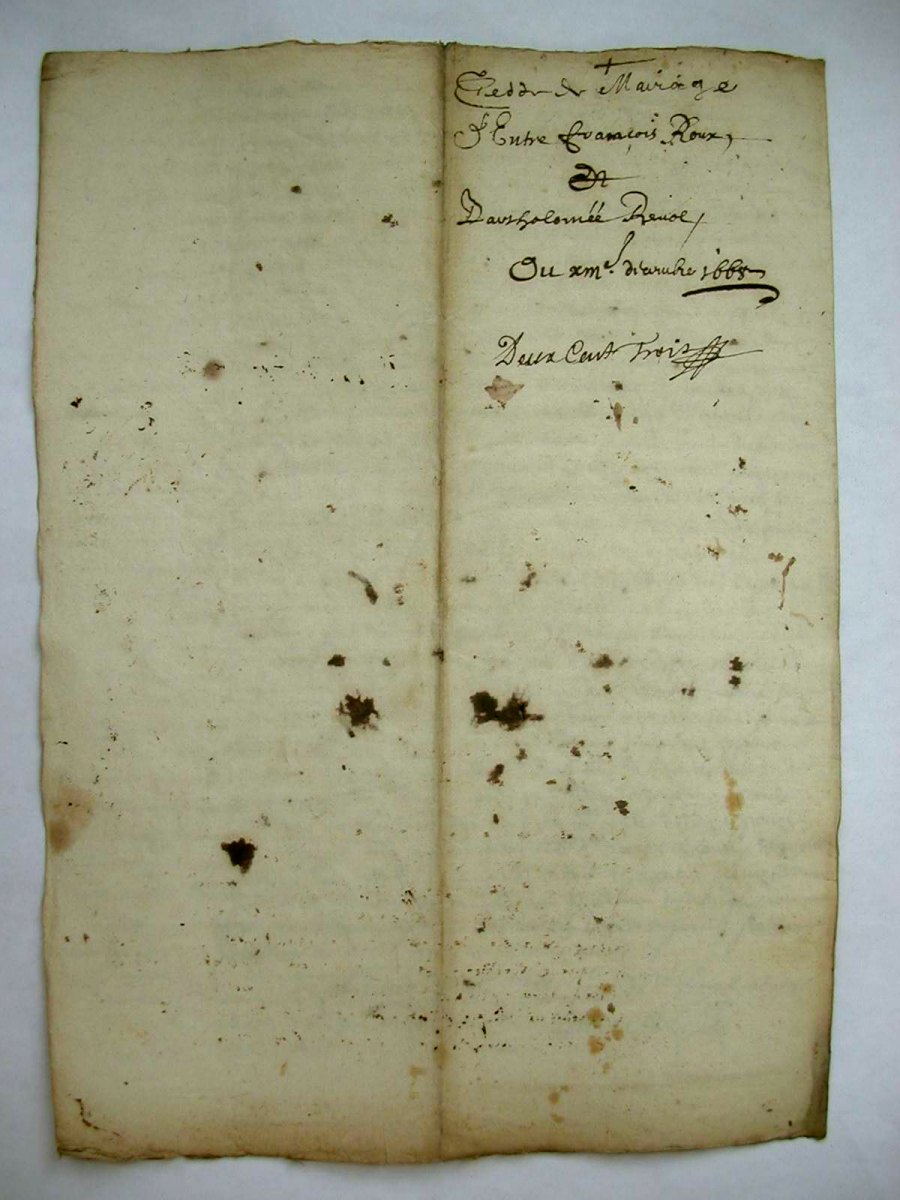 Cedde de Mariage
Entre françois Roux,
Et
Barthobomée Revol,
Du xme. décembre 1668
Deux Cent Trois